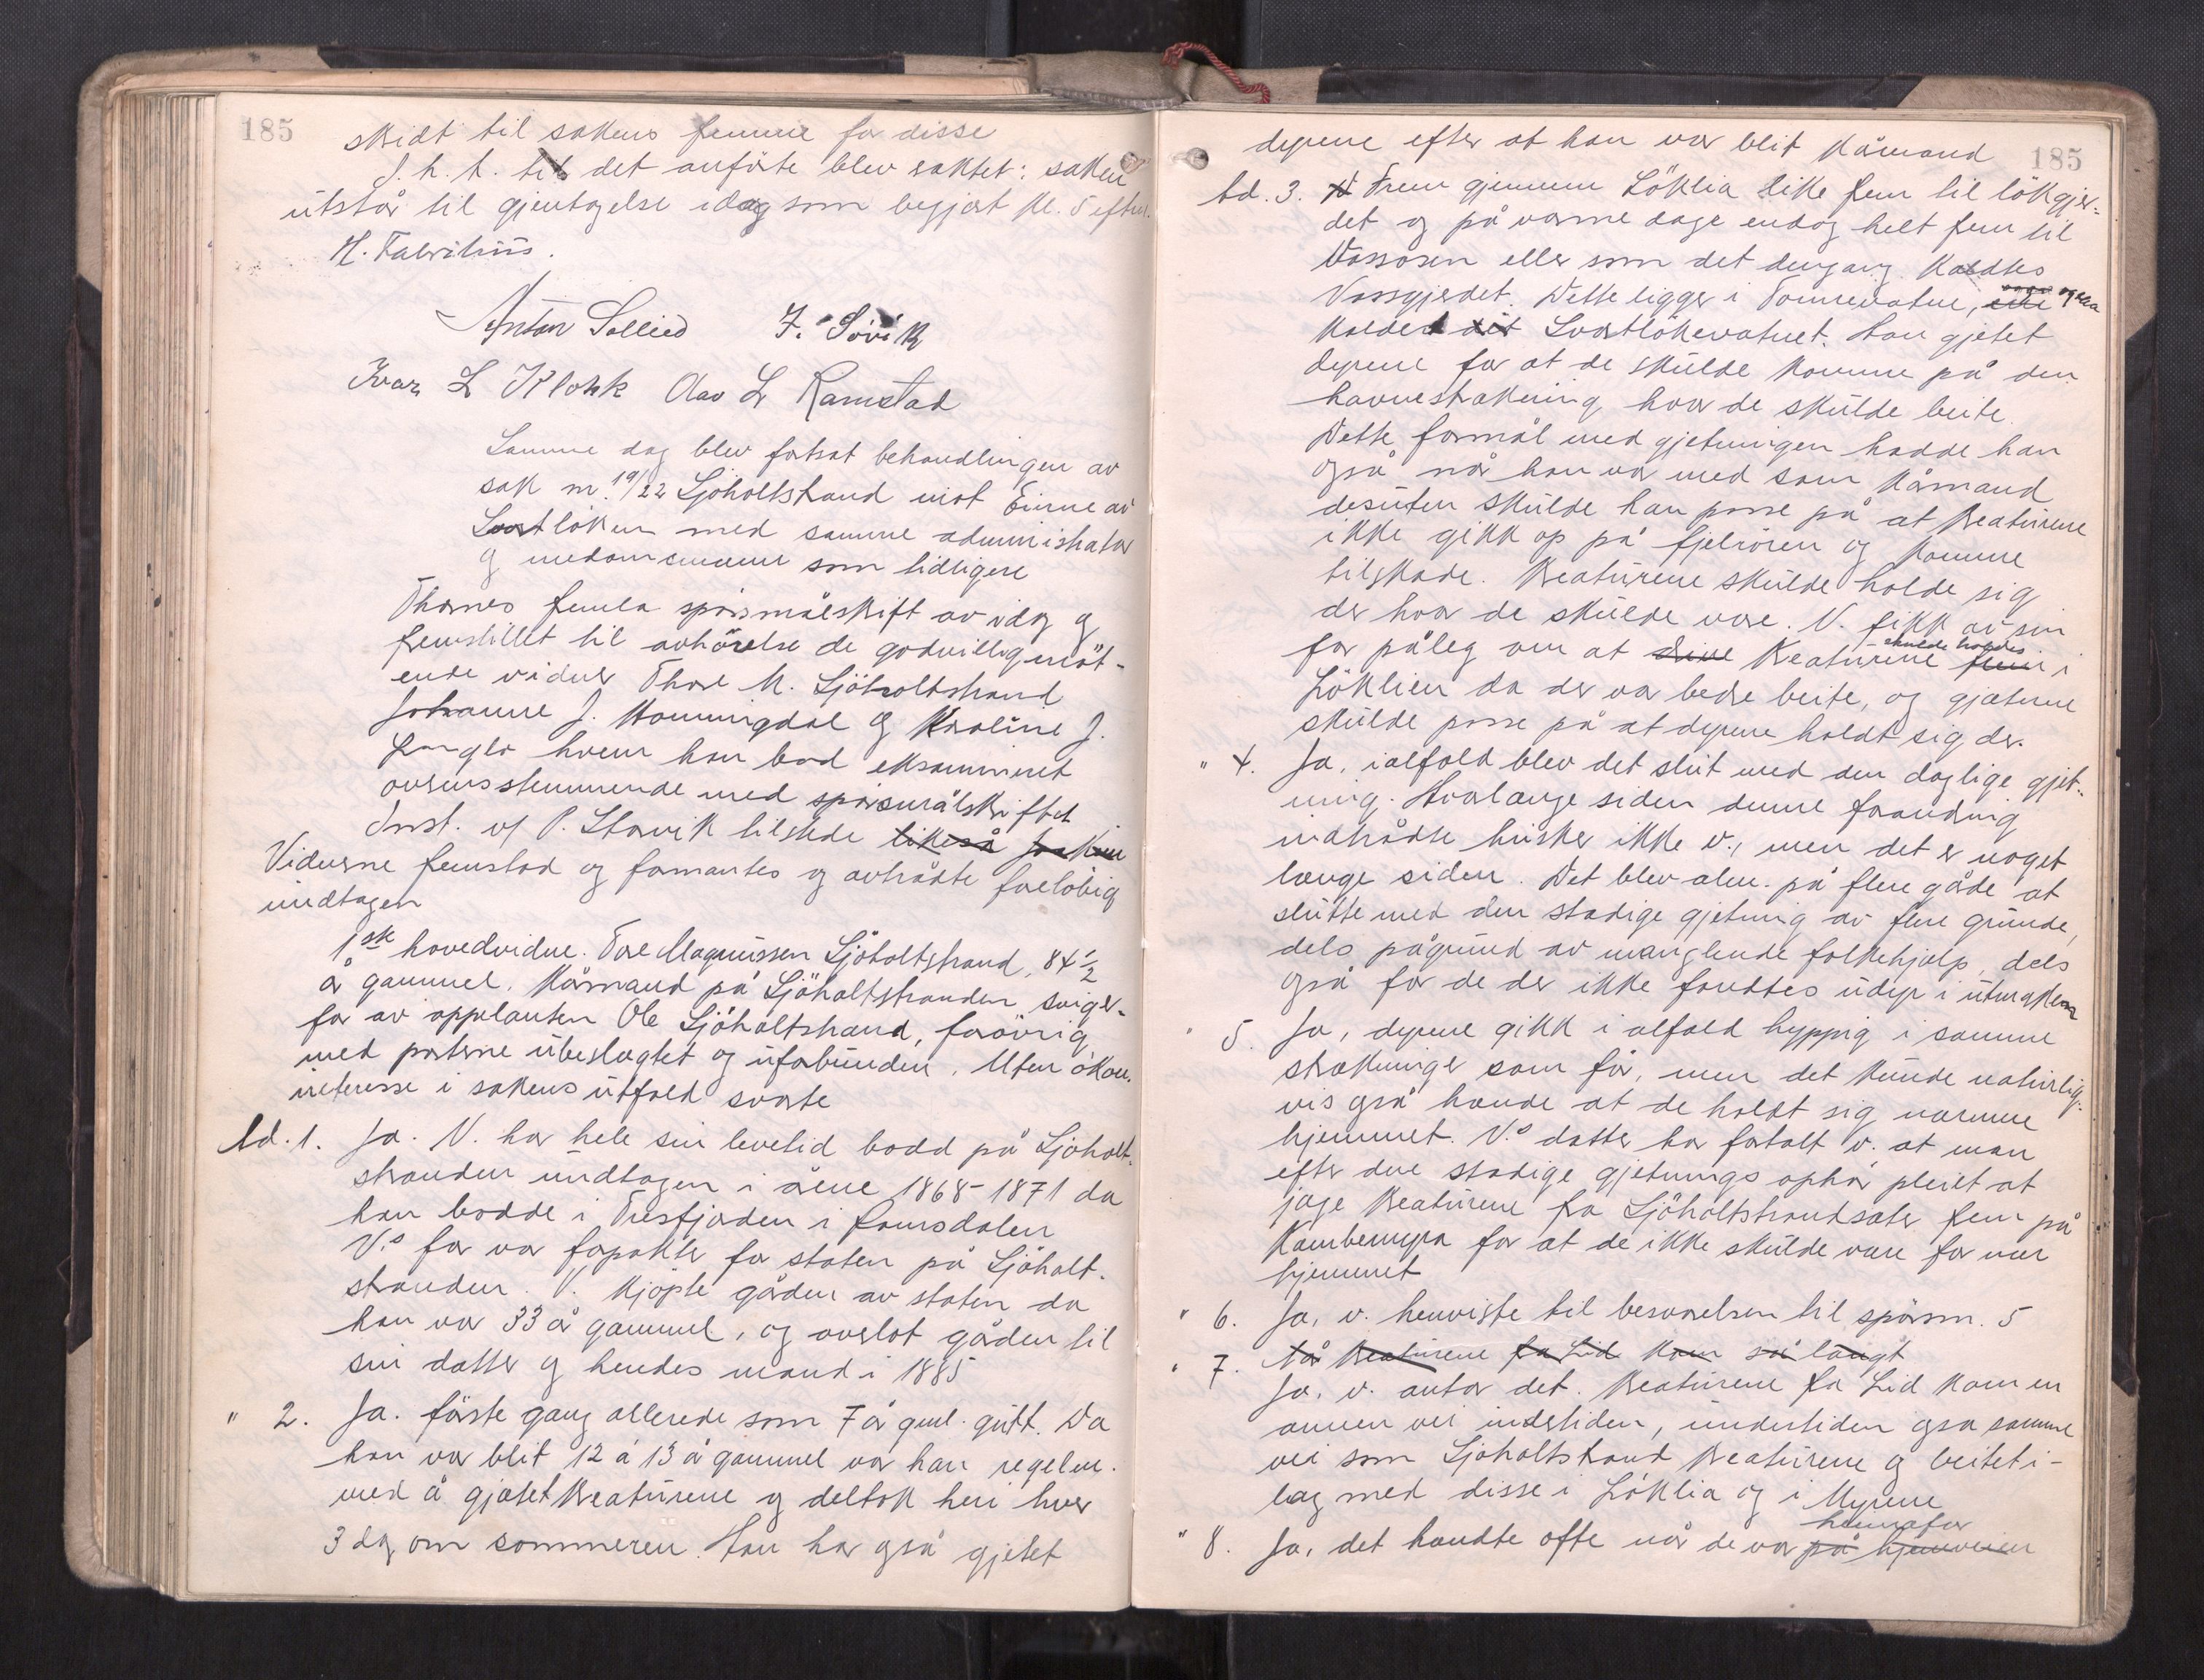 185
skidt til sakens fremme for disse
S. h. t. til det anførte blev vaktet: saken
utstår til gjentagelse idag som begjært kl. 5 efterm.
H. Fabritius.
Anton Sollied J. Søvik
Ivar L Klokk Olav L Ramstad
Samme dag blev fortsat behandlingen av
sak nr. 19/22 Sjöholtstrand mot Eierne av
Svartlöken med samme administrator
og meddomsmenn som tidligere
Thornes fremla spörsmålskrift av idag og
fremstillet til avhörelse de godvillig möt-
ende vidner Thore M. Sjöholtstrand
Johanne J. Hommingdal og Karoline J.
Langlo hvem han bad eksamineret
overensstemmende med spörsmålskriftet
Inst. v/ P. Starvik tilstede likeså
Vidnerne fremstod og formantes og avtrådte foreløbig
undtagen
1ste hovedvidne. Tore Magnussen Sjöholtstrand, 84 1/2
år gammel. Kårmand på Sjöholtstranden, sviger-
far av applanten Ole Sjöholtstrand, forövrig
med parterne ubeslegtet og uforbunden. Uten økon.
interesse i sakens utfald svarte
td. 1. Ja. V. har hele sin levetid bodd på Sjöholt-
stranden undtagen i årene 1868-1871 da
han bodde i Tresfjorden i Romsdalen
V.s far var forpakter for staten på Sjöholt-
stranden. V. kjøpte gården av staten da
han var 33 år gammel, og overlot gården til
sin datter og hendes mand i 1885
" 2. Ja. förste gang allerede som 7 år gml. gutt. Da
han var blit 12 á 13 år gammel var han regelm.
med å gjætet kreaturene og deltok heri hver
3 dag om sommeren. Han har også gjetet
185
dyrene efter at han var blit kårmand
td. 3. Frem gjennem Löklia like frem til lökgjer-
det og på varme dage endog helt frem til
Vassosen eller som det dengang kaldtes
Vassgjerdet. Dette ligger i Tomrevatne, også
kaldet Svartlökevatnet. Han gjetet
dyrene for at de skulde komme på den
havnestrekning hvor de skulde beite.
Dette formål med gjetningen hadde han
også når han var med som kårmand
desuten skulde han passe på at kreaturene
ikke gikk op på fjelrören og komme
tilskade. Kreaturene skulde holde sig
der hvor de skulde være. V. fikk av sin
far påleg om at kreaturene skulde holdes i
Löklien da der var bedre beite, og gjæterne
skulde passe på at dyrene holdt sig der.
" 4. Ja, ialfald blev det slut med den daglige gjet-
ning. Hvorlænge siden denne forandring
indtrådte husker ikke v., men det er noget
længe siden. Det blev alm. på flere gårde at
slutte med den stadige gjetning av flere grunde,
dels pågrund av manglende folkehjelp, dels
også for de der ikke fandtes udyr i utmarken
" 5. Ja, dyrene gikk i alfald hyppig i samme
strekninger som før, men det kunde naturlig-
vis også hænde at de holdt sig nærmere
hjemmet. V.s datter har fortalt v. at man
efter den stadige gjetnings ophør pleiet at
jage kreaturene fra Sjöholtstrandsæter frem på
Kambemyra for at de ikke skulde være for nær
hjemmet
" 6. Ja, v. henviste til besvarelsen til spörsm. 5
" 7. Når kreaturene fra Lid kom så langt
Ja, v. antar det. Kreaturene fra Lid kom en
annen vei indstiden, understiden også samme
vei som Sjöholtstrand kreaturene og beitet i-
lag med disse i Löklia og i Myrene
" 8. Ja, det hændte ofte når de var på hjemveien